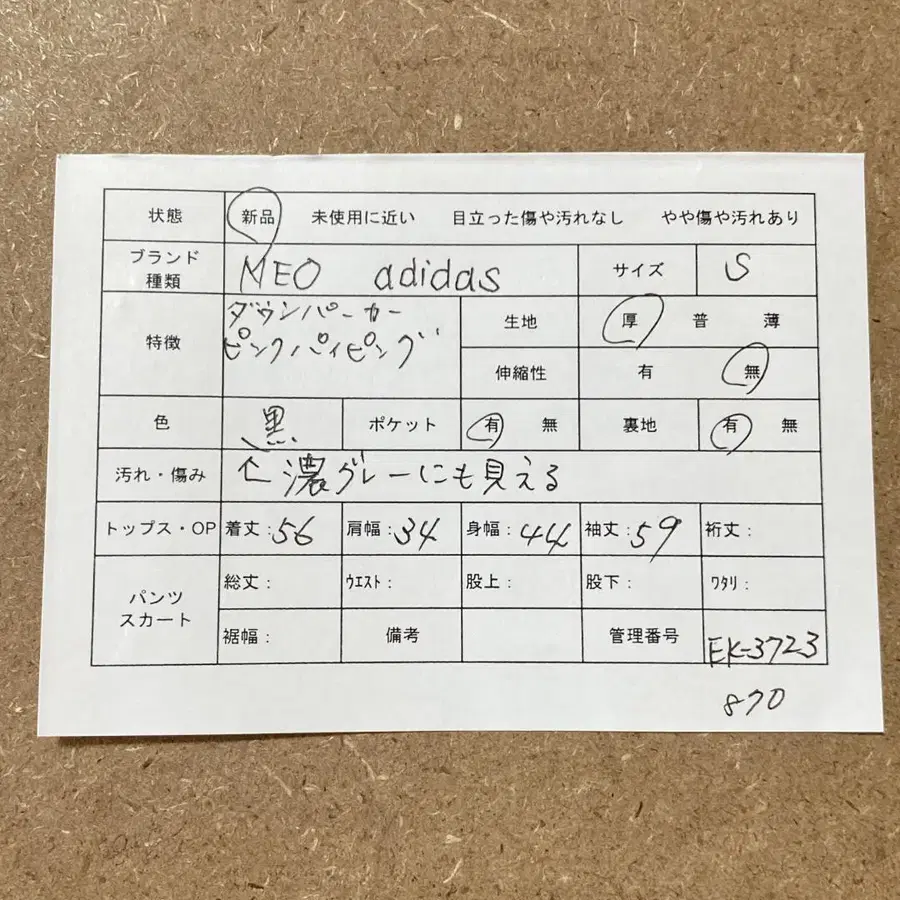 状態 新品 未使用に近い 目立った傷や汚れなし やや傷や汚れあり
ブランド種類 NEO adidas サイズ S
特徴 ダウンパーカー
ピンクパイピング
生地 厚 普 薄
伸縮性 有 無
色 黒 ポケット 有 無 裏地 有 無
汚れ・傷み ↑濃グレーにも見える
トップス・OP 着丈:56 肩幅:34 身幅:44 袖丈:59 裄丈:
パンツ
スカート
総丈: ウエスト: 股上: 股下: ワタリ:
裾幅: 備考 管理番号 EK-3723
870